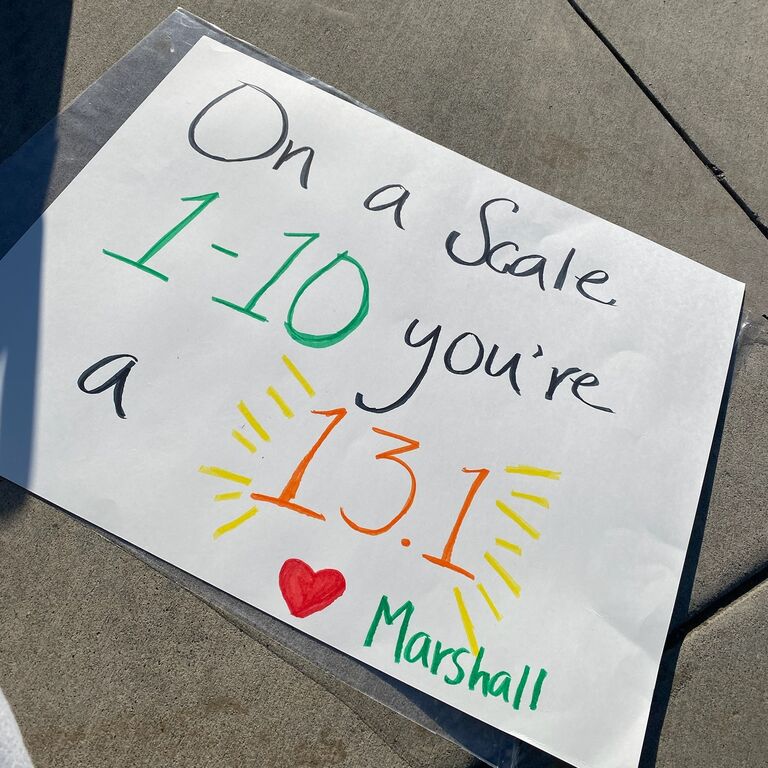 On a Scale
1-10 you're
a 13.1
♥ Marshall